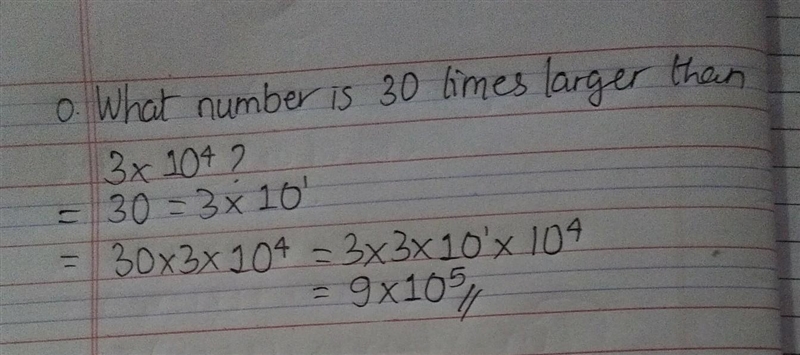 O. What number is 30 times larger than
3x10⁴?
= 30 = 3x10¹
= 30x3x10⁴ = 3x3x10¹x10⁴
= 9x10⁵//